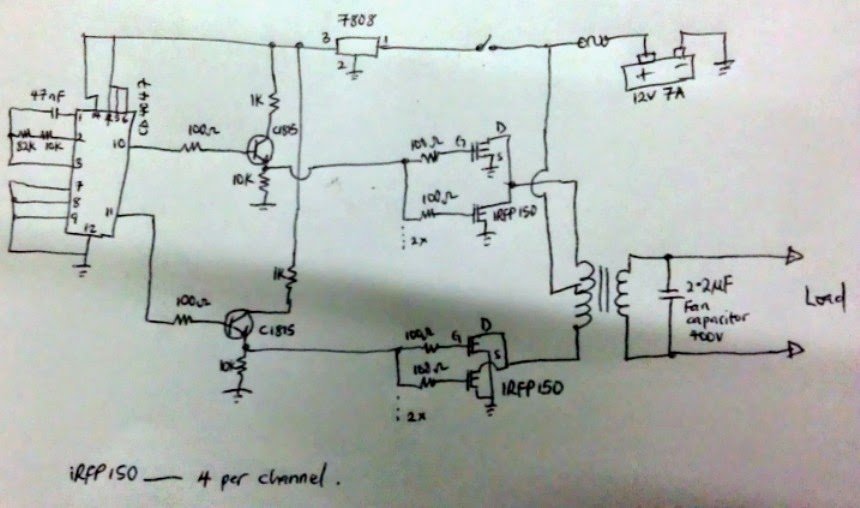 7808
3
1
2
47nF
CD4047
14 4 5 6
1
1K
C1815
12V 7A
+ -
100Ω
2
10
82K 10K
3
10K
100Ω G D
S
7
8
9
11
12
100Ω
IRFP150
2x
1K
2.2µF
Fan
capacitor
400V
Load
100Ω
C1815
100Ω G D
S
10K
100Ω
IRFP150
2x
iRFP150 — 4 per channel.